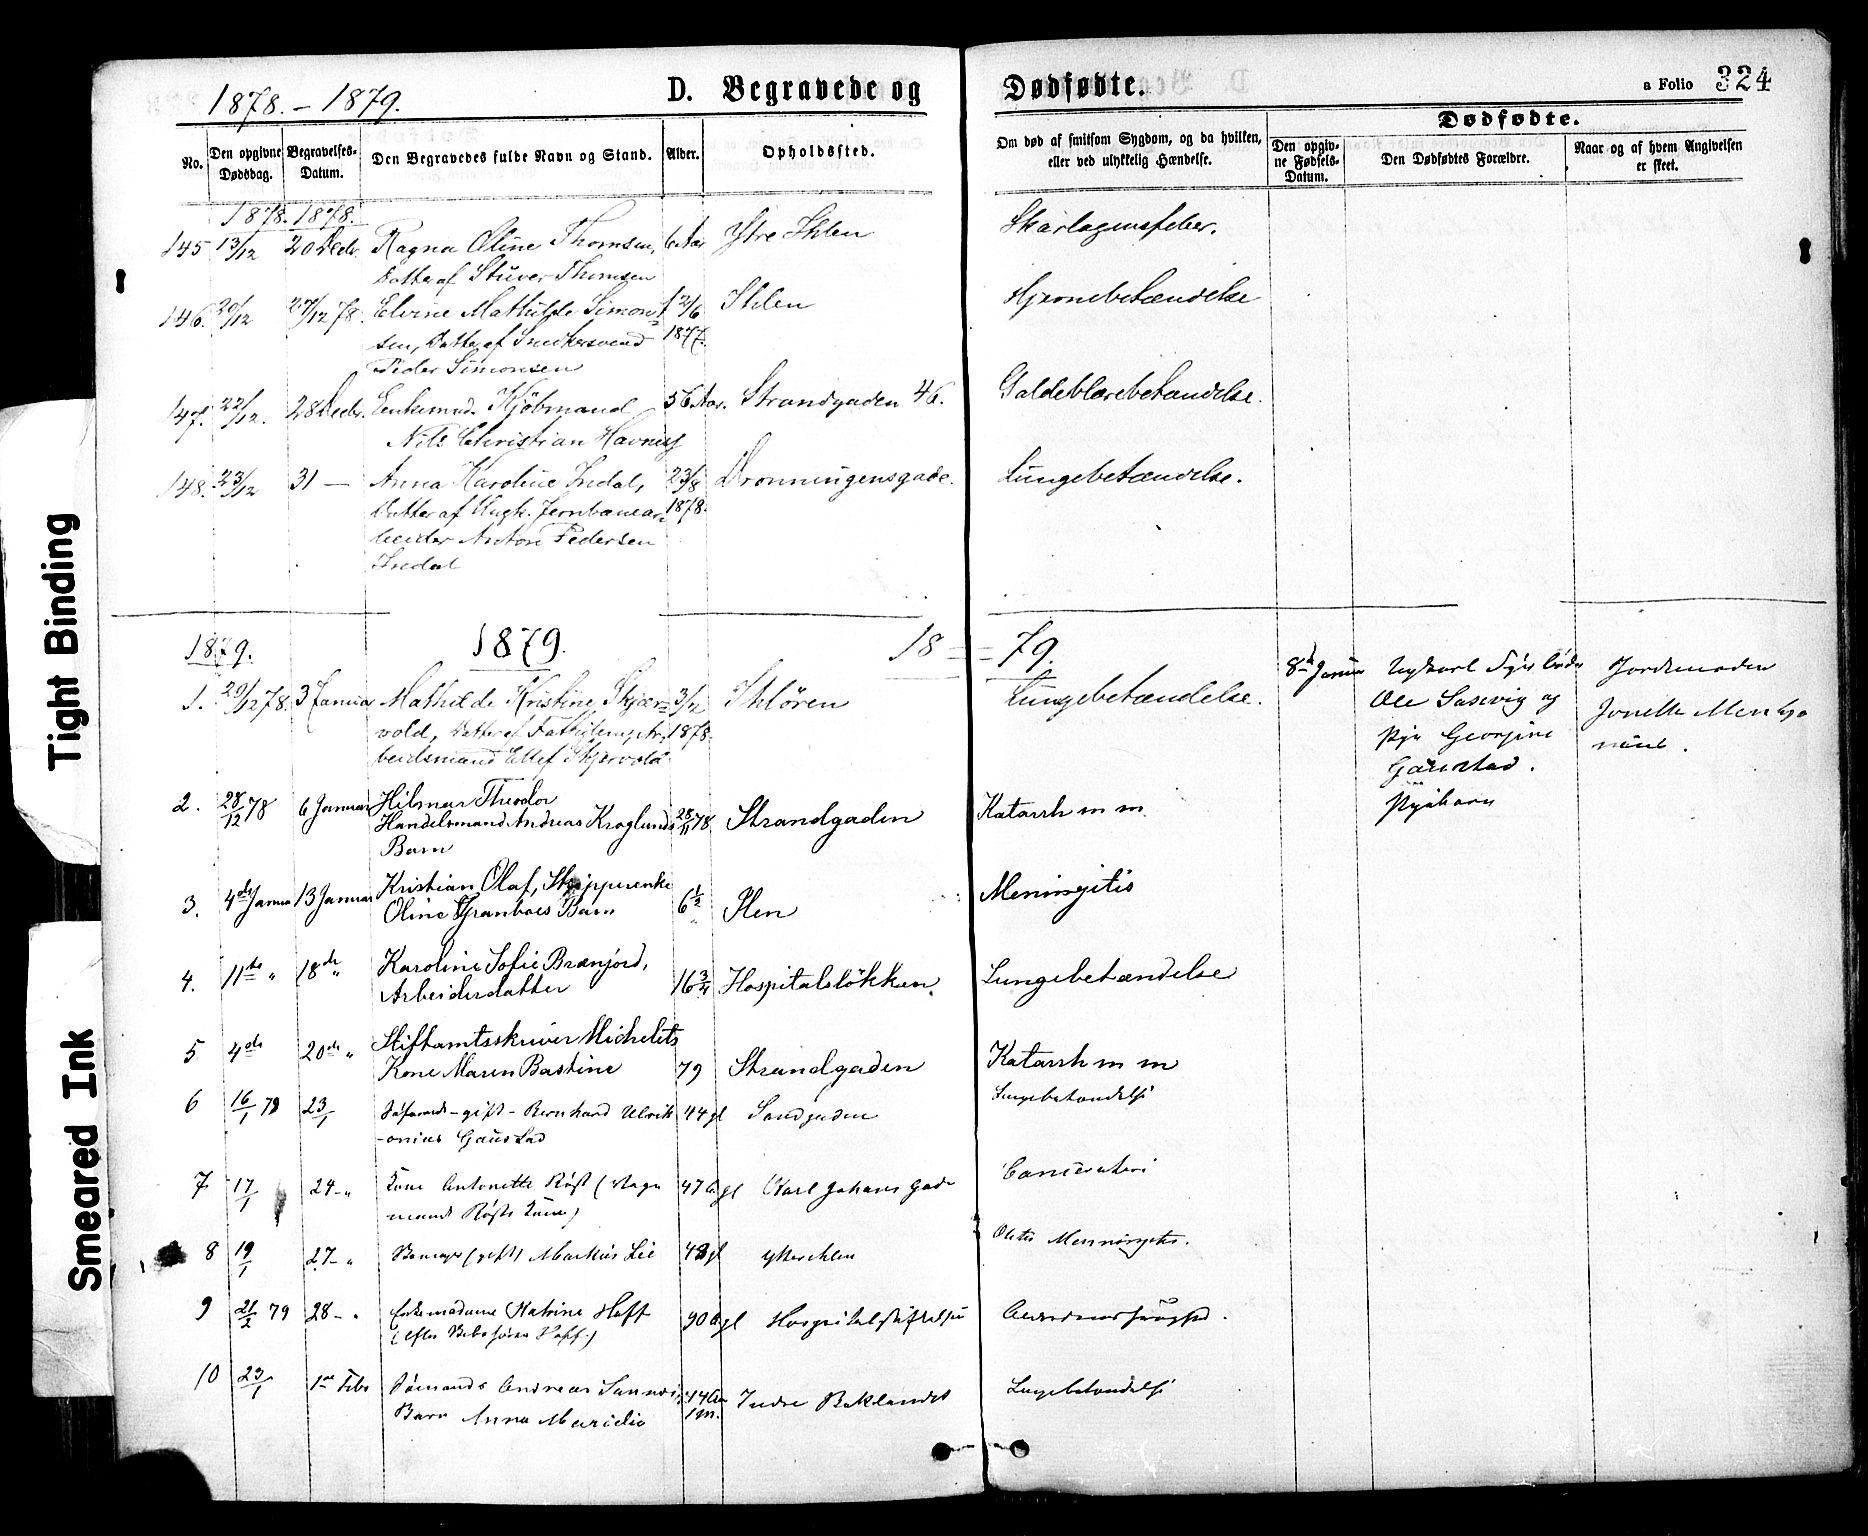 1878. - 1879.
D. Begravede og Dødfødte.
a Folio 324
No.
Den opgivne Dødsdag.
Begravelses-Datum.
Den Begravedes fulde Navn og Stand.
Alder.
Opholdssted.
Om død af smitsom Sygdom, og da hvilken, eller ved ulykkelig Hændelse.
Dødfødte.
Den opgivne Fødsels-Datum.
Den Dødfødtes Forældre.
Naar og af hvem Angivelsen er skeet.
1878. 1878.
145 13/12 20 Decbr. Ragna Oline Thomsen, 6 Aar Ytre Ihlen Skarlagensfeber.
Datter af Stuver Thomsen
146. 20/12 27/12 78. Elvine Mathilde Simon- 12/6 Ihlen Hjernebetændelse
sen, Datter af Snedkersvend 1877.
Peder Simonsen
147. 22/12. 28 Decbr. Enkemd. Kjøbmand 56 Aar. Strandgaden 46. Galdeblærebetændelse.
Nils Christian Havnes
148. 23/12 31 — Anna Karoline Indal, 23/8 Dronningensgade. Lungebetændelse.
Datter af Ungk. Jernbanear- 1878.
beider Anton Pedersen
Indal
1879. 1879. 18 = = 79.
1. 29/12 78. 3 Januar Mathilde Kristine Skjær- 3/12 Ihlören Lungebetændelse.
vold, Datter af Fattiglem, Ar- 1878.
beidsmand Ellef Skjervold
8de Januar
Ole Sasevig og
Pige Georgine
Gaustad.
Pigebarn
Jordemoder
Jonette
2. 28/12 78 6 Januar Hilmar Theodor
Handelsmand Andreas Kroglunds 28/11 78. Strandgaden Katarrh m m.
Barn
3. 4de Janua 13 Januar Kristian Olaf, Skipperenke
Oline Granboes Barn 6 1/2 Ilen Meningitis
4. 11te " 18de " Karoline Sofie Brænjord,
Arbeiderdatter 16 3/4 Hospitalslökken. Lungebetændelse
5 4de 20de " Stiftamtsskriver Michelets
Kone Maren Bastine 79 Strandgaden Katarrh m m
6 16/1 79 23/1 - gift - Bernhard Ulrik 44 gl Sandgaden Lungebetændelse
Gaustad
7 17/1 24 - " Kone Antonette Røst ( Vogn 47 Aa gl Karl Johans Gade
mand Røsts Kone)
8 19/1 27 - " (gift) Markus Lie 48 gl Ytterihlen Otitis Menningitis.
9 21/2 79 28 - " Enkemadame Katrine Hoff 90 Aa gl Hospitalstiftelse
10 23/1 1ste Febr Sømands Andreas Sunnes, Indre Baklandet Lungebetændelse
Barn Anna 1 m.
Tight Binding
Smeared Ink